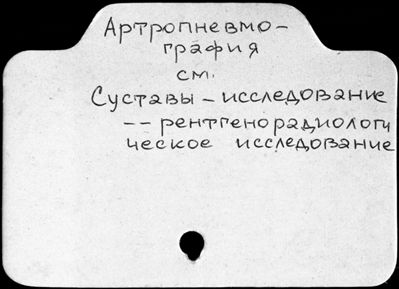 Артропневмо-
графия
см.
Суставы - исследование
-- рентгенорадиологи
ческое исследование